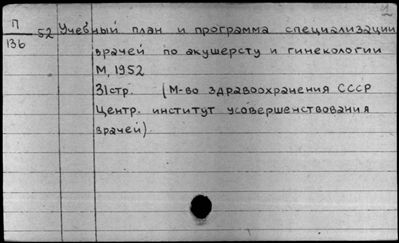 П 52 Учебный план и программа специализации
136 врачей по акушерсту и гинекологии
М, 1952
31стр. (М-во здравоохранения СССР
Центр. институт усовершенствования
врачей)